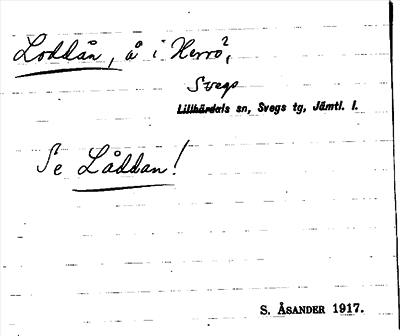 Loddån, å i Herrö²,
Svegs
Lillhärdals sn, Svegs tg, Jämtl. l.
Se Låddan!
S. ÅSANDER 1917.